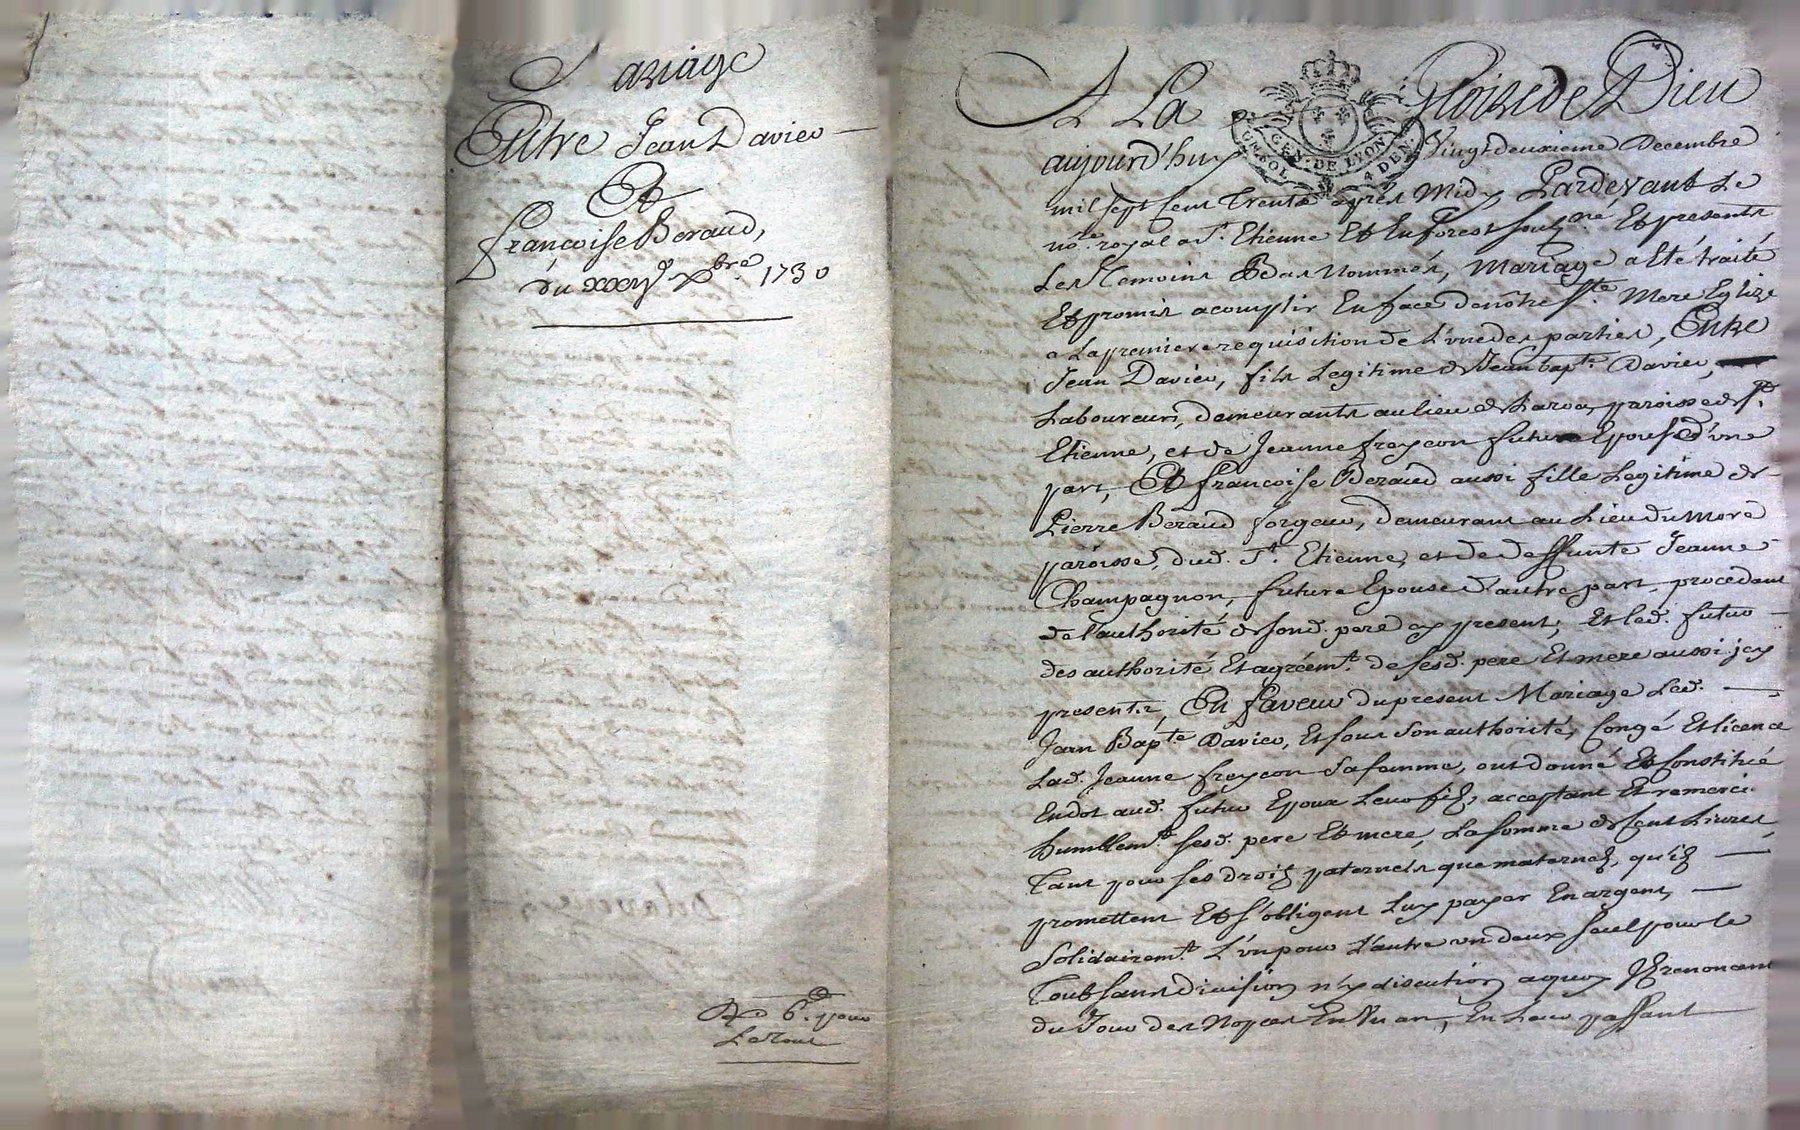 Mariage
Entre Jean Davieu
Et
françoise Beraud,
du xxij xbre 1730
6d. pour
Le Tout
A La Gloire de Dieu
GEN. DE LYON
4 DEN.
aujourd'huy Vingt deuxieme Decembre
mil sept cent Trente apres Midy Pardevant Le
nore. royal a St. Etienne Et En forest soubzné. Et presents
Les Temoins Bas Nommés, Mariage a Eté traité
Et promis acomplir En face de nôtre Ste. Mere Eglize
a La premiere requisition de L'une des parties, Entre
Jean Davieu, fils Legitime de Jean bapte. Davieu,
Laboureur, demeurants au lieu de paroisse de St.
Etienne, et de Jeanne freycon futur Epoux d'une
part, Et françoise Beraud aussi fille Legitime de
Pierre Beraud forgeur, demeurant au Lieu du
paroisse, dud. St. Etienne, et de deffunte Jeanne
Champagnon, future Epouse d'autre part, procedant
de l'authorité de sond. pere cy present; Et led. futur
des authorité Et agréemt. de sesd. pere Et mere aussi jcy
presents, En faveur du present Mariage Led.
Jean Bapte. Davieu, Et sous Son authorité, Congé Et licence
Lad. Jeanne freycon Sa femme, ont donné Et Constitué
En dot aud. futur Epoux Leur fils, acceptant Et remerci.
humblemt. sesd. pere Et mere, La somme de Cent Livres,
Tant pour ses droits paternels que maternels, qu'ils
promettent Et s'obligent Luy payer En argent,
Solidairemt. L'un pour L'autre un deux seul pour le
Tout sans division ny discution a quoy renoncent
du Jour des Nopces En Un an, En Leur passant